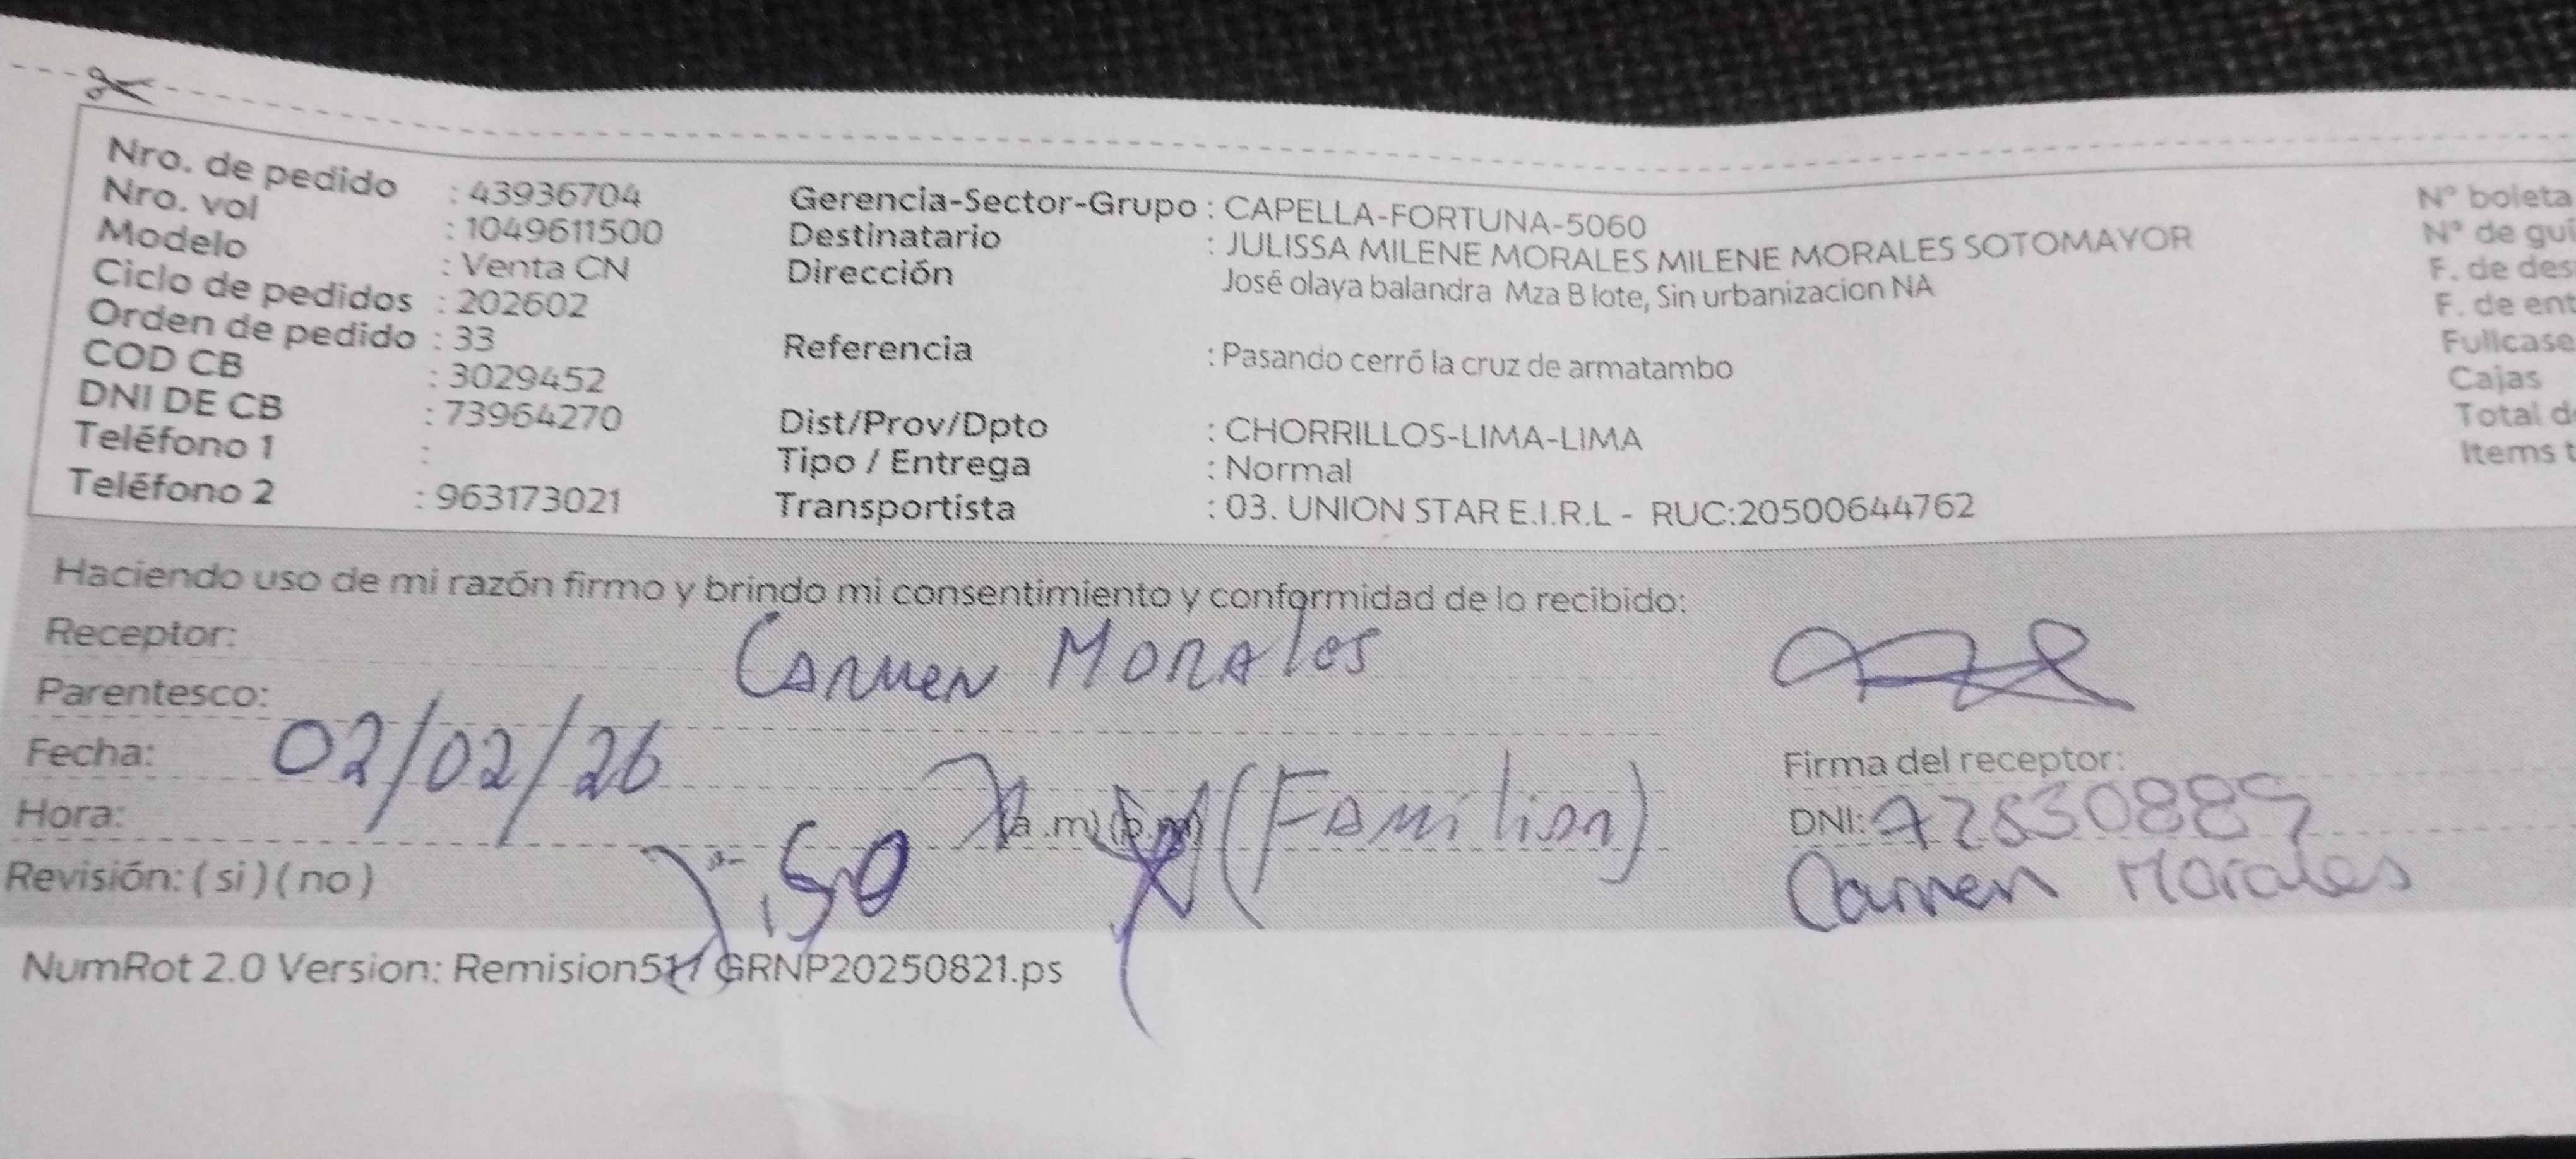 Nro. de pedido : 43936704
Nro. vol : 1049611500
Modelo : Venta CN
Ciclo de pedidos : 202602
Orden de pedido : 33
COD CB : 3029452
DNI DE CB : 73964270
Teléfono 1 :
Teléfono 2 : 963173021
Gerencia-Sector-Grupo : CAPELLA-FORTUNA-5060
Destinatario : JULISSA MILENE MORALES MILENE MORALES SOTOMAYOR
Dirección José olaya balandra Mza B lote, Sin urbanizacion NA
Referencia : Pasando cerró la cruz de armatambo
Dist/Prov/Dpto : CHORRILLOS-LIMA-LIMA
Tipo / Entrega : Normal
Transportista : 03. UNION STAR E.I.R.L - RUC:20500644762
N° boleta
N° de gui
F. de des
F. de ent
Fullcase
Cajas
Total d
Items t
Haciendo uso de mi razón firmo y brindo mi consentimiento y conformidad de lo recibido:
Receptor: Carmen Morales
Parentesco:
Fecha: 02/02/26
Hora: :50 (a.m) (p.m) (Familiar)
Revisión: ( si ) ( no )
Firma del receptor:
DNI:
Carmen Morales
NumRot 2.0 Version: GRNP20250821.ps